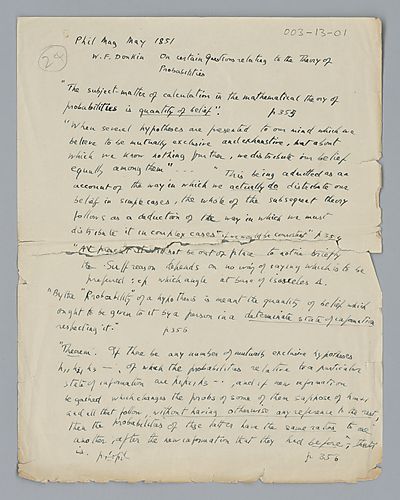 003-13-01
29
Phil Mag May 1851
W.F. Donkin On certain Questions relating to the Theory of
Probabilities
"The subject-matter of calculation in the mathematical theory of
probabilities is quantity of belief". p 354
"When several hypotheses are presented to our mind which we
believe to be mutually exclusive and exhaustive, but about
which we know nothing further, we distribute our belief
equally among them" . . . . "This being admitted as an
account of the way in which we actually do distribute our
belief in simple cases, the whole of the subsequent theory
follows as a deduction of the way in which we must
distribute it in complex cases if we would be consistent" p 354
not be out of place to notice briefly
the Suff reason depends on no way of saying which is to be
preferred : cf which angle at base of isosceles Δ.
"By the "Probability" of a hypothesis is meant the quantity of belief which
ought to be given to it by a person in a determinate state of information
respecting it." p 356
"Theorem. If there be any number of mutually exclusive hypotheses
h₁, h₂, h₃ —, of which the probabilities relative to a particular
state of information are p₁ p₂ p₃ - -, and if new information
be gained which changes the probs of some of them suppose of
and all that follow, without having otherwise any reference to the rest,
then the probabilities of these latter have the same ratios to one
another, after the new information that they had before", that
is. p 356